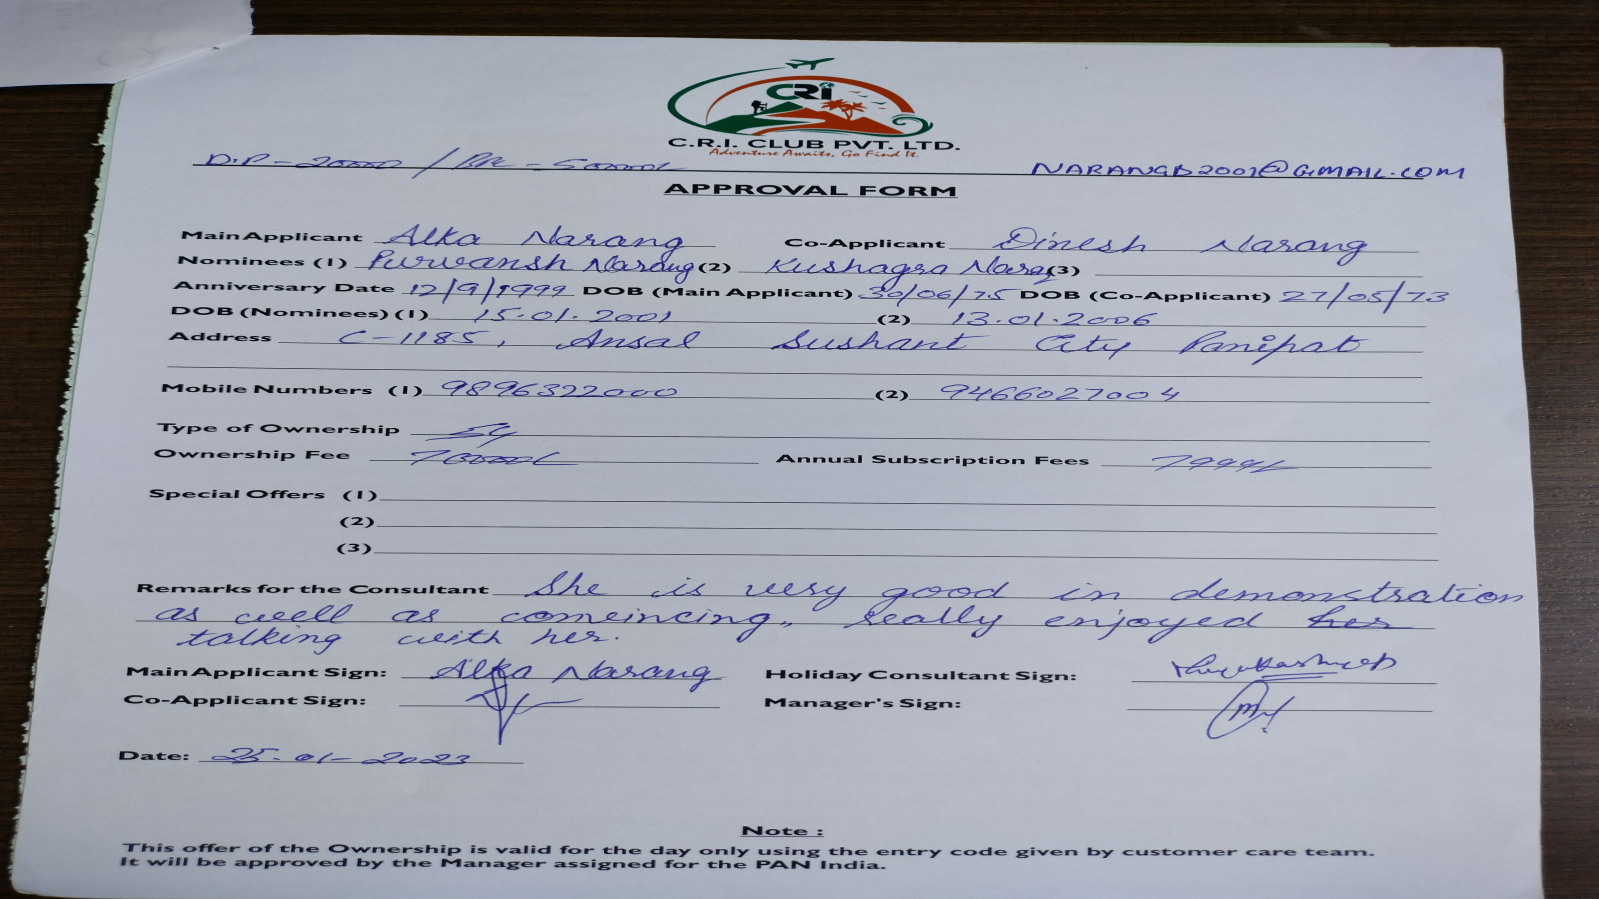 CRi
C.R.I. CLUB PVT. LTD.
Adventure Awaits, Go Find It.
D.P - 20000 / - 50000/-
NARANGD2001@GMAIL.COM
APPROVAL FORM
Main Applicant Alka Narang Co-Applicant Dinesh Narang
Nominees (1) Purwansh Narang (2) Kushagra Narang (3)
Anniversary Date 12/9/1999 DOB (Main Applicant) 30/06/75 DOB (Co-Applicant) 27/05/73
DOB (Nominees) (1) 15.01.2001 (2) 13.01.2006
Address C-1185, Ansal Sushant City Panipat
Mobile Numbers (1) 9896322000 (2) 9466027004
Type of Ownership 5y
Ownership Fee 70000/- Annual Subscription Fees 7999/-
Special Offers (1)
(2)
(3)
Remarks for the Consultant She is very good in demonstration
as well as comeincing, really enjoyed her
talking with her.
Main Applicant Sign: Alka Narang Holiday Consultant Sign:
Co-Applicant Sign: Manager's Sign:
Date: 25-01-2023
Note :
This offer of the Ownership is valid for the day only using the entry code given by customer care team.
It will be approved by the Manager assigned for the PAN India.